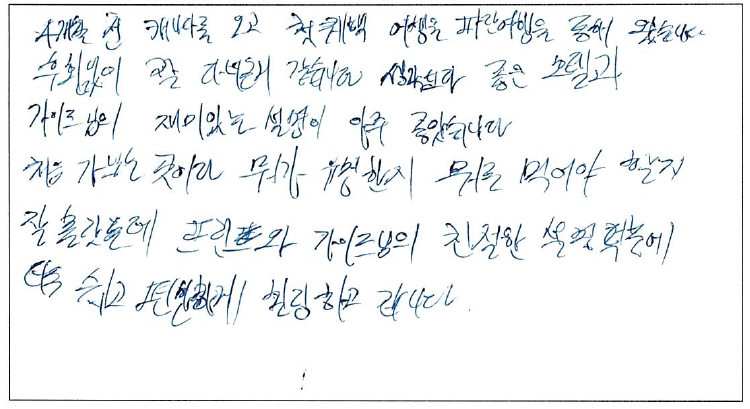 4개월 전 캐나다를 오고 첫 퀘백 여행을 파란여행을 통해 왔습니다.
후회없이 잘 다녀온거 같습니다 생각보다 좋은 호텔과
가이드님의 재미있는 설명이 아주 좋았습니다
처음 가보는 곳이라 뭐가 유명한지 뭐를 먹어야 할지
잘 몰랐는데 프린트와 가이드님의 친절한 설명 덕분에
쉽고 편안하게 힐링하고 갑니다